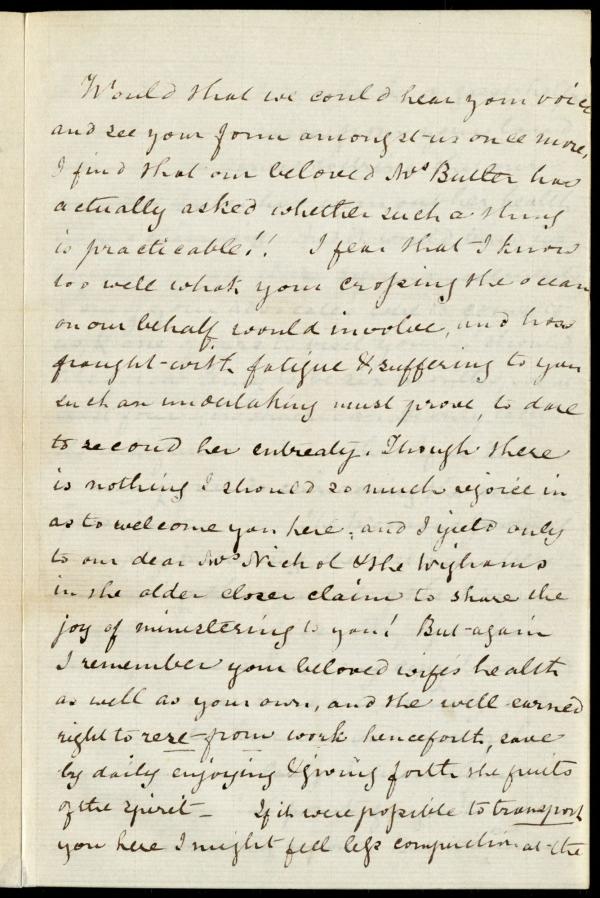 Would that we could hear your voice
and see your form amongst us once more,
I find that our beloved Mrs Butler has
actually asked whether such a thing
is practicable!! I fear that I know
too well what your crossing the ocean
on our behalf would involve, and how
fraught with fatigue & suffering to you
such an undertaking must prove, to dare
to second her entreaty. Though there
is nothing I should so much rejoice in
as to welcome you here; and I yield only
to our dear Mrs Nichol & the Wighams
in the older closer claim to share the
joy of ministering to you! But again
I remember your beloved wife's health
as well as your own, and the well earned
right to rest from work henceforth, save
by daily enjoying & giving forth the fruits
of the spirit — If it were possible to transport
you here I might feel less compunction at the